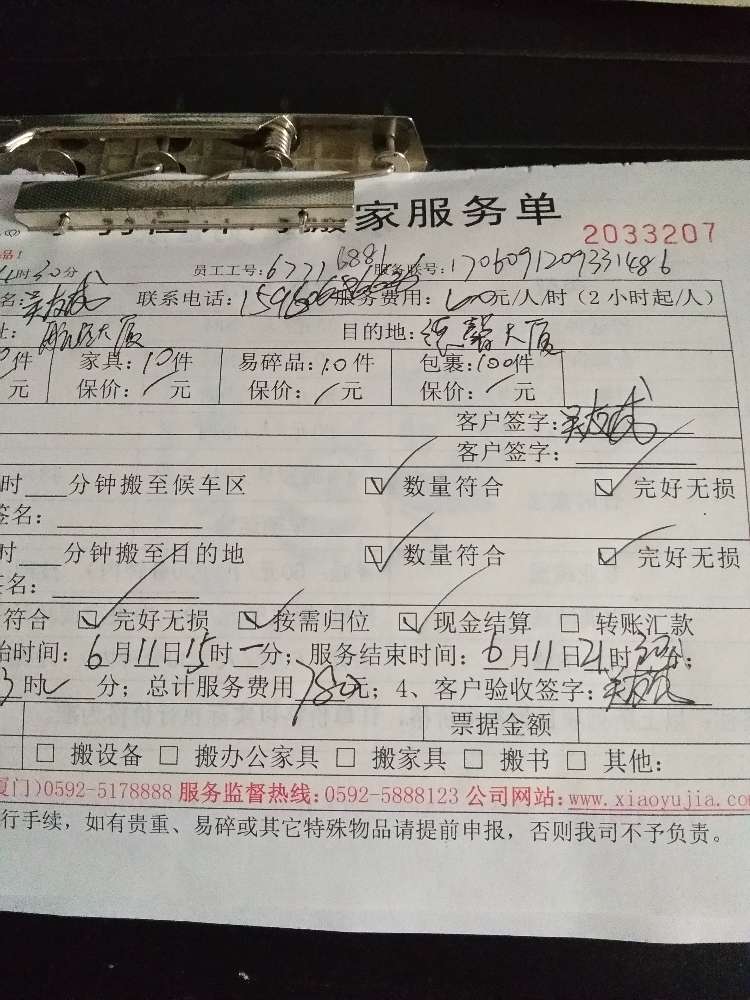 搬家服务单 2033207
品!
时30分 员工工号:6771 6886 服务联号:1706091209331486
名:吴友成 联系电话: 服务费用: 元/人/时(2小时起/人)
址: 大厦 目的地:德馨大厦
件 家具:10件 易碎品:10件 包裹:100件
元 保价:/元 保价:/元 保价:/元
客户签字:吴友成
客户签字:
时 分钟搬至候车区 ☑ 数量符合 ☑ 完好无损
签名:
时 分钟搬至目的地 ☑ 数量符合 ☑ 完好无损
签名:
符合 ☑ 完好无损 ☑ 按需归位 ☑ 现金结算 □ 转账汇款
始时间:6月11日15时 分;服务结束时间:6月11日21时 分;
3时 分;总计服务费用780元;4、客户验收签字:吴友成
票据金额
□ 搬设备 □ 搬办公家具 □ 搬家具 □ 搬书 □ 其他:
厦门)0592-5178888 服务监督热线:0592-5888123 公司网站:www.xiaoyujia.com
行手续,如有贵重、易碎或其它特殊物品请提前申报,否则我司不予负责。